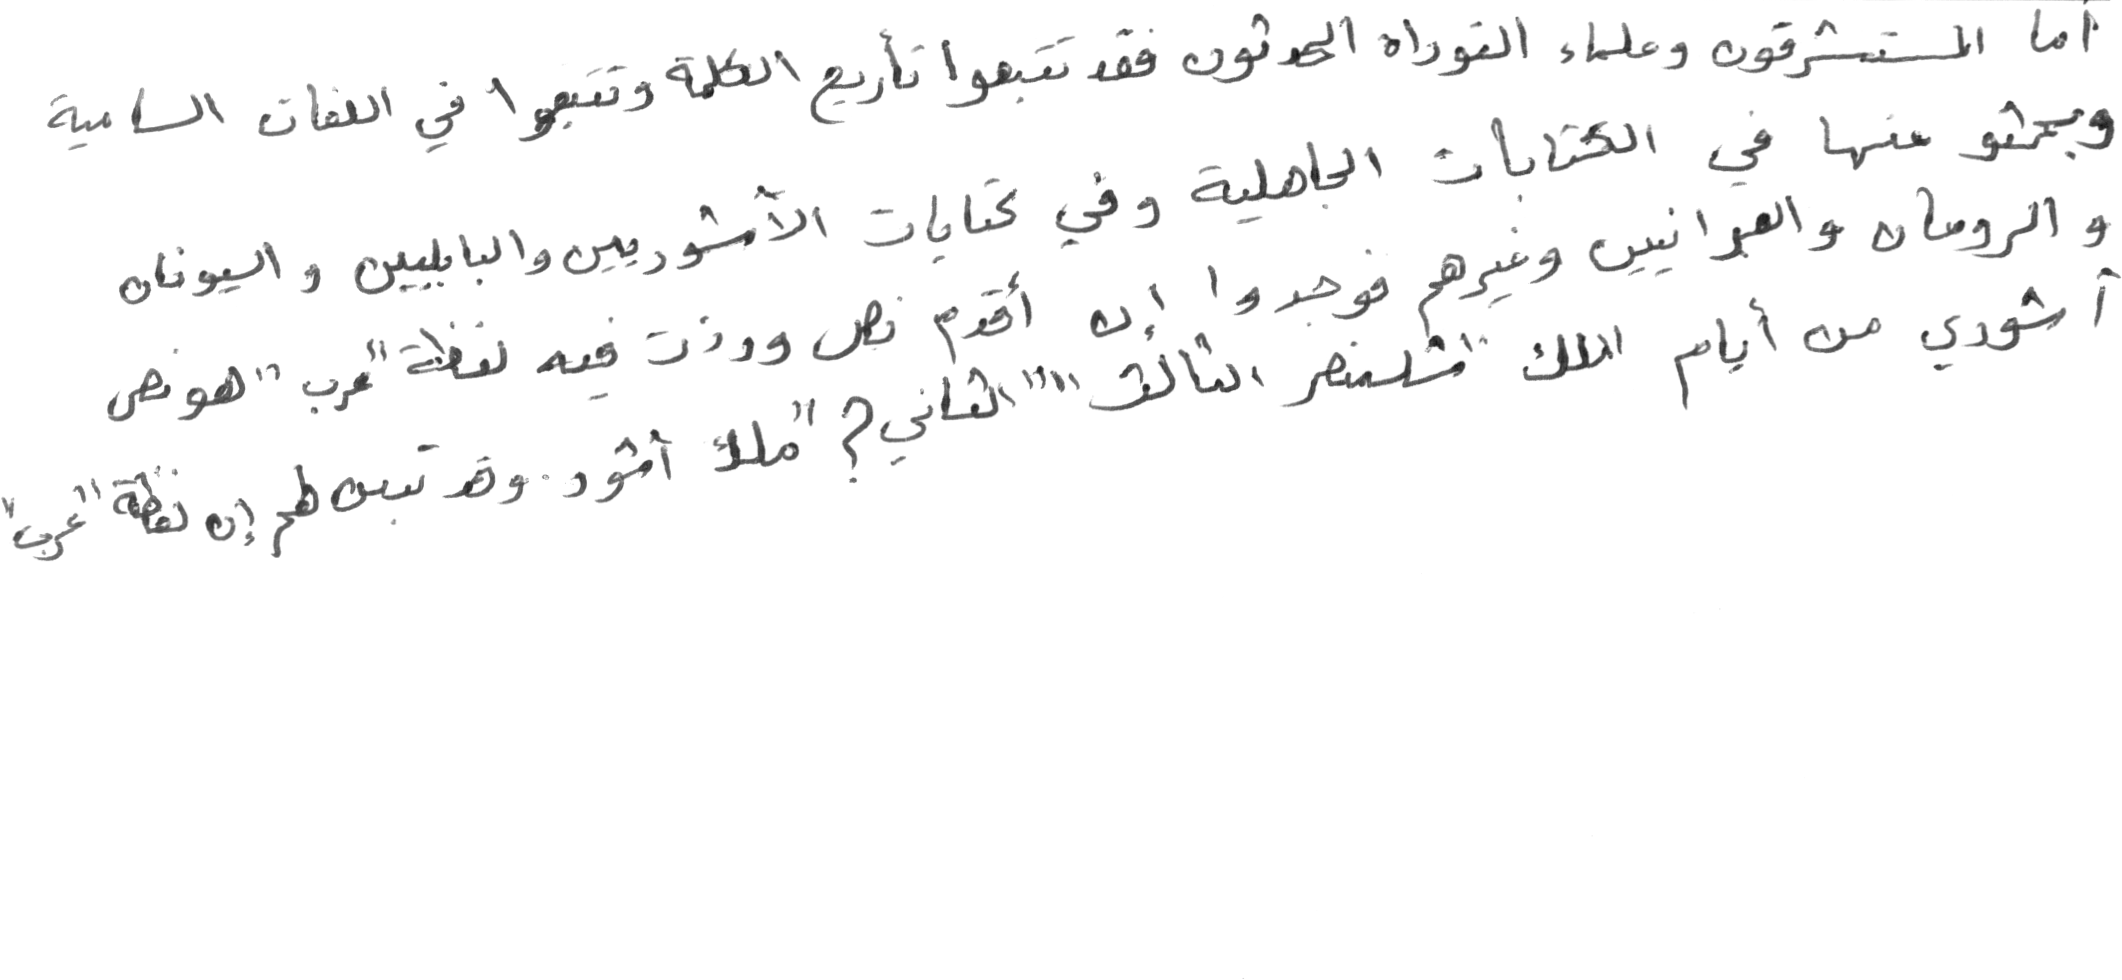 أما المستشرقون وعلماء التوراه المحدثون فقد تتبعوا تأريخ الكلمة وتتبعوا في اللغات السامية
وبحثو عنها في الكتابات الجاهلية وفي كتابات الآشوريين والبابليين واليونان
و الرومان والعبرانيين وغيرهم فوجدوا إن أقدم نص ووردت فيه لفظة "عرب" هو نص
آشوري من أيام الملك "شلمنصر الثالث" "الثاني؟" ملك آشور. وقد تبين لهم إن لفظة "عرب"